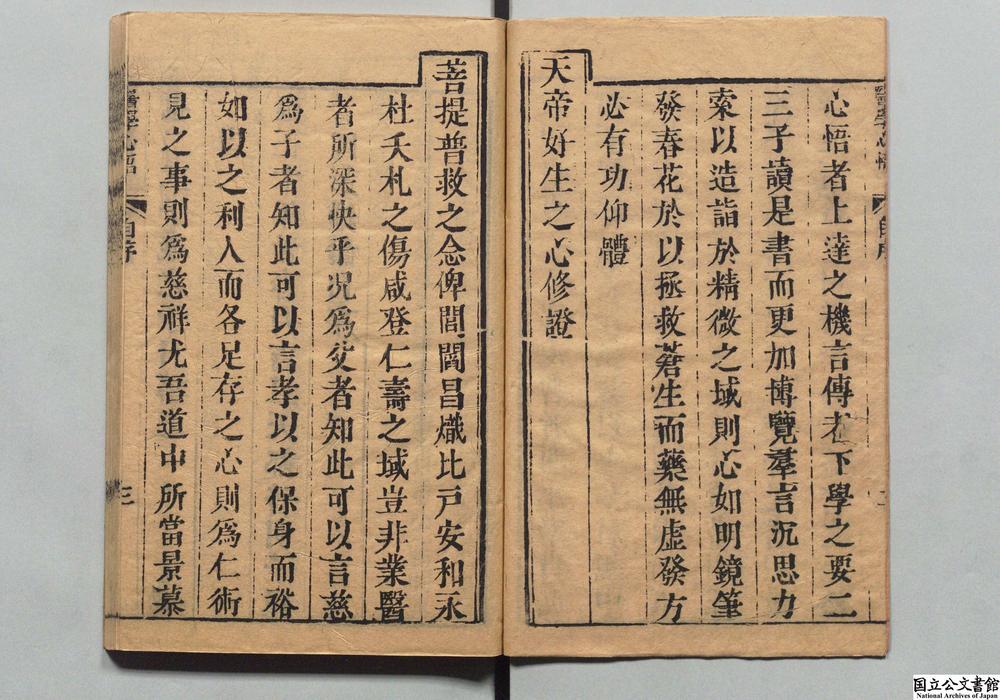 心悟者上達之機言傳者下學之要二
三子讀是書而更加博覽羣言沉思力
索以造詣於精微之域則心如明鏡筆
發春花於以拯救蒼生而藥無虛發方
必有功仰體
天帝好生之心修證
菩提普救之念俾閭閻昌熾比戸安和永
杜夭札之傷咸登仁壽之域豈非業醫
者所深快乎况爲父者知此可以言慈
爲子者知此可以言孝以之保身而裕
如以之利人而各足存之心則爲仁術
見之事則爲慈祥尤吾道中所當景慕
醫學心悟
自序
三
国立公文書館
National Archives of Japan